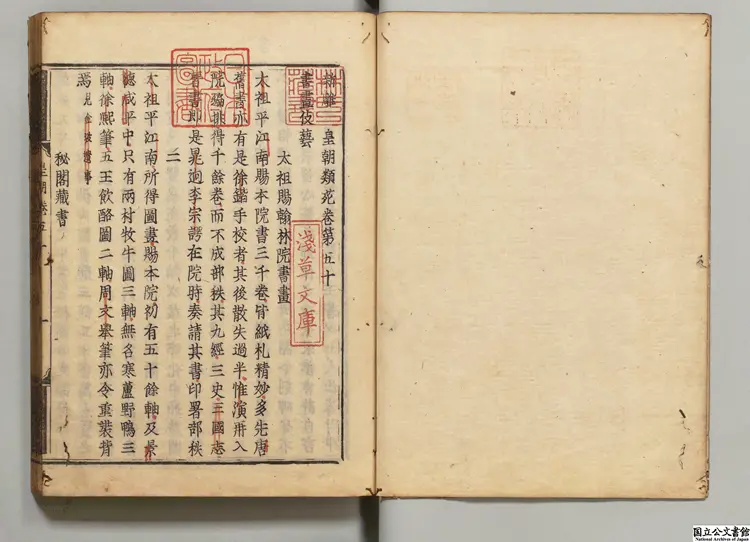 新雕 皇朝類苑卷第五十
書畫伎藝
太祖賜翰林院書畫
太祖平江南賜本院書三千卷皆紙札精妙多先唐
舊書亦有是徐鍇手校者其後散失過半惟演再入
院編排得千餘卷而不成部秩其九經三史三國志
晉書即是晁迥李宗諤在院時奏請其書印署部秩
二
太祖平江南所得圖畫賜本院初有五十餘軸及景
德咸平中只有兩村牧牛圖三軸無名寒蘆野鴨三
軸徐熙筆五王飲酪圖二軸周文舉筆亦令重裝背
焉 見金坡遺事
秘閣藏書
皇朝卷五十
淺草文庫
日本政府圖書
国立公文書館
National Archives of Japan